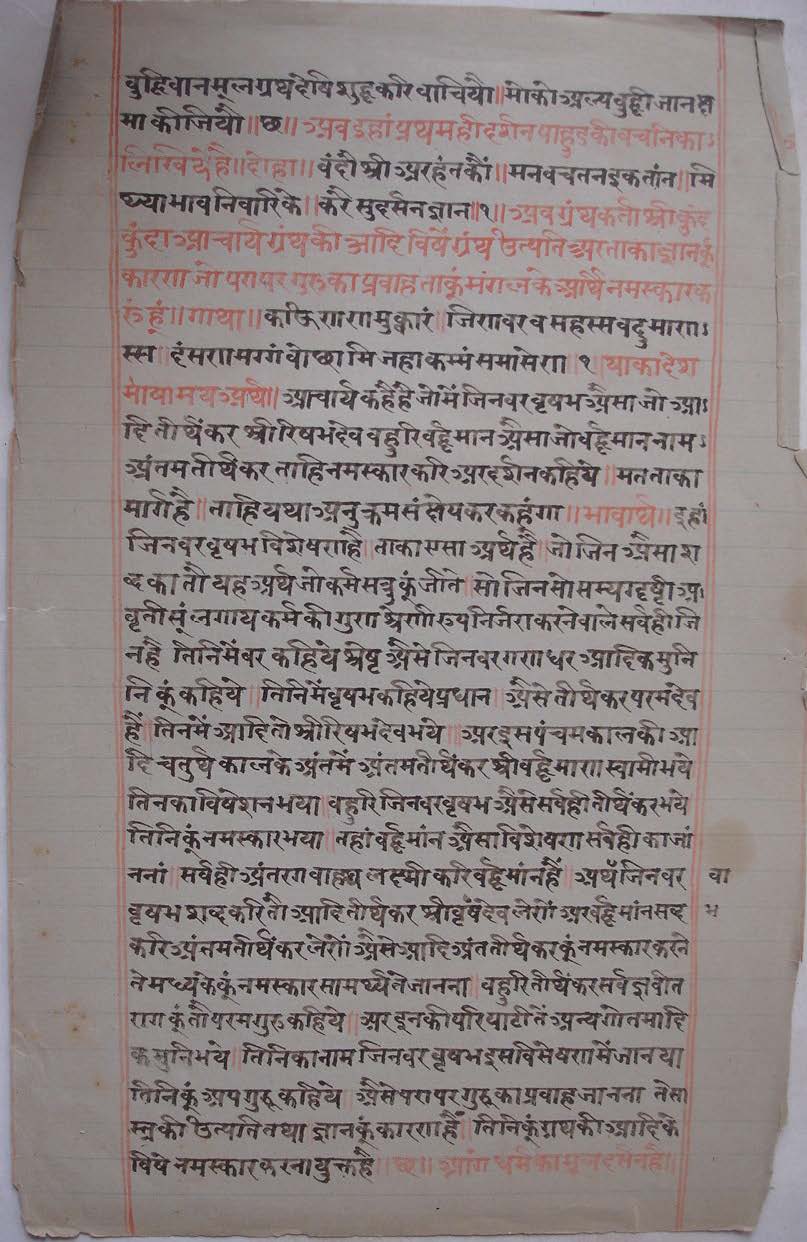 वुद्धिवानमूलग्रथदेषिशुद्धकरिवाचियौ॥ मोकौअल्पवुद्धीजानक्ष
माकीजियौ॥छ॥ अवइहांप्रथमहीदर्शनपाहुडकीवचनिका
लिखियेहै॥दोहा॥ वंदौश्रीअरहंतकौं॥ मनवचतनइकतांन॥ मि
थ्याभावनिवारिके॥ करैसुदर्सनज्ञान॥१॥ अवग्रंथकर्ताश्रीकुंद
कुंदाआचार्यग्रंथकीआदिविषेंग्रंथउत्पतिअरताकाज्ञानकूं
कारणजोपरापरगुरुकाप्रवाहताकूंमंगलकेअर्थिनमस्कारक
रुंहूं॥गाथा॥ काऊणणमुक्कारं॥ जिणवरवसहस्सवद्दुमाण
स्स॥ दंसणमग्गंवोछामिजहाकम्मंसमासेण॥१॥ याकादेश
भाषामयअर्थ॥ आचार्यकहैंहैजोमेंजिनवरवृषभअैसाजोआ
दितीर्थंकरश्रीरिषभदेववहुरिवर्द्धमानअैसाजोवर्द्धमाननाम
अंतमतीर्थंकरताहिनमस्कारकरिअरदर्शनकहिये॥ मतताका
मार्गहै॥ ताहियथाअनुक्रमसंक्षेपकरकहूंगा॥ भावार्थ॥ इहां
जिनवरवृषभविशेषणहै॥ ताकाएसाअर्थहै॥ जोजिनअैसाश
व्दकातौयहअर्थजोकर्मसत्रुकूंजीतेसोजिनसोसम्यग्दृष्टीअ
वृतीसूंलगायकर्मकीगुणश्रेणीरुपनिर्जराकरनेवालेसर्वहीजि
नहै॥ तिनिमेंवरकहियेश्रेष्टअैसेजिनवरगणधरआदिकमुनि
निकूंकहिये॥ तिनिमेंवृषभकहियेप्रधान॥ अैसेतीर्थंकरपरमदेव
हैं॥ तिनमेंआदितोश्रीरिषभदेवभये॥ अरइसपंचमकालकीआ
दिचतुर्थकालकेअंतमेंअंतमतीर्थंकरश्रीवर्द्धमाणस्वामीभये
तिनकाविषेशनभया॥ वहुरिजिनवरवृषभअैसेसर्वहीतीर्थंकरभये
तिनिकूंनमस्कारभया॥ तहांवर्द्धमांनअैसाविशेषणसर्वहीकाजां
ननां॥ सर्वहीअंतरगवाह्यलक्ष्मीकरिवर्द्धमांनहैं॥ अथवाजिनवर
वृषभशव्दकरितौआदितीर्थंकरश्रीवृषभदेवलेणोंअरवर्द्धमांनसव्द
करिअंतमतीर्थंकरलेणों॥ अैसेआदिअंततीर्थंकरकूंनमस्कारकरने
तेमध्यकेकूंनमस्कारसामर्थ्यतेजानना॥ वहुरितीर्थंकरसर्वज्ञवीत
रागकूंतौपरमगुरुकहिये॥ अरइनकीपरिपाटीतेंअन्यगौतमादि
कमुनिभये॥ तिनिकानामजिनवरवृषभइसविसेषणमेंजानया
तिनिकूंअपगुरूकहिये॥ अैसेपरापरगुरुकाप्रवाहजानना॥ तेसा
स्त्रकीउत्पतितथाज्ञानकूंकारणहैं॥ तिनिकूंग्रथकीआदिके
विषेनमस्कारकरनायुक्तहै॥छ॥ आगेधर्मकामूलदर्सनहै॥
वा
भ